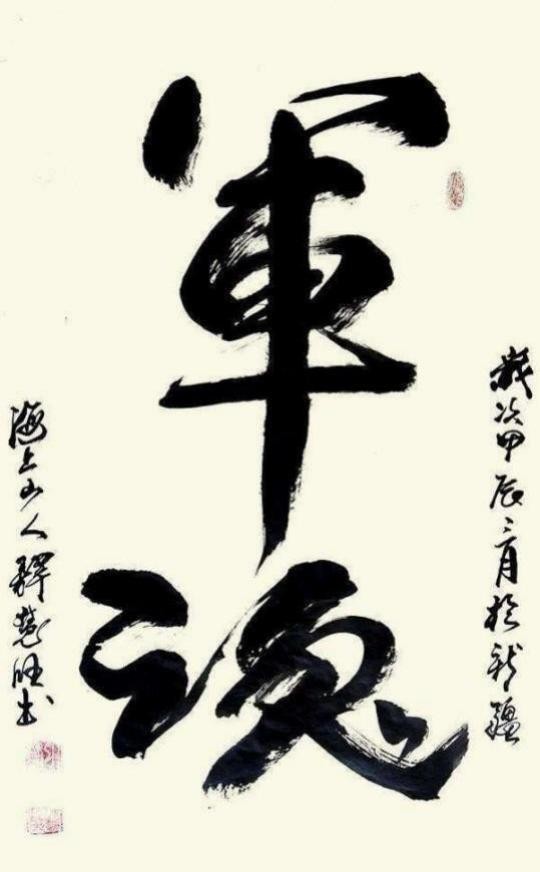 歲次甲辰二月於新疆
軍魂
海上山人釋慧旺書